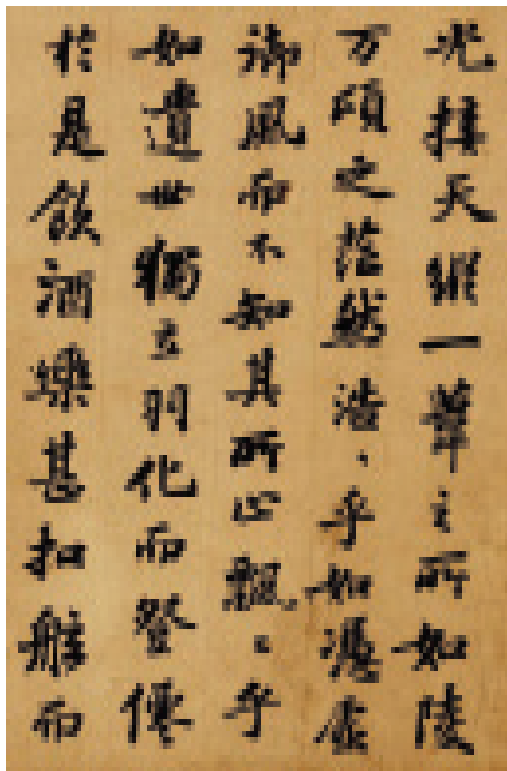 光接天縱一葦之所如陵
万頃之茫然浩、乎如馮虛
御風而不知其所止飄〻乎
如遺世獨立羽化而登僊
於是飲酒樂甚扣舷而